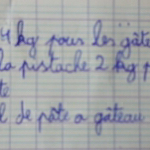 4 kg pour les gâte
la pistache 2 kg p
te
de pâte a gâteau